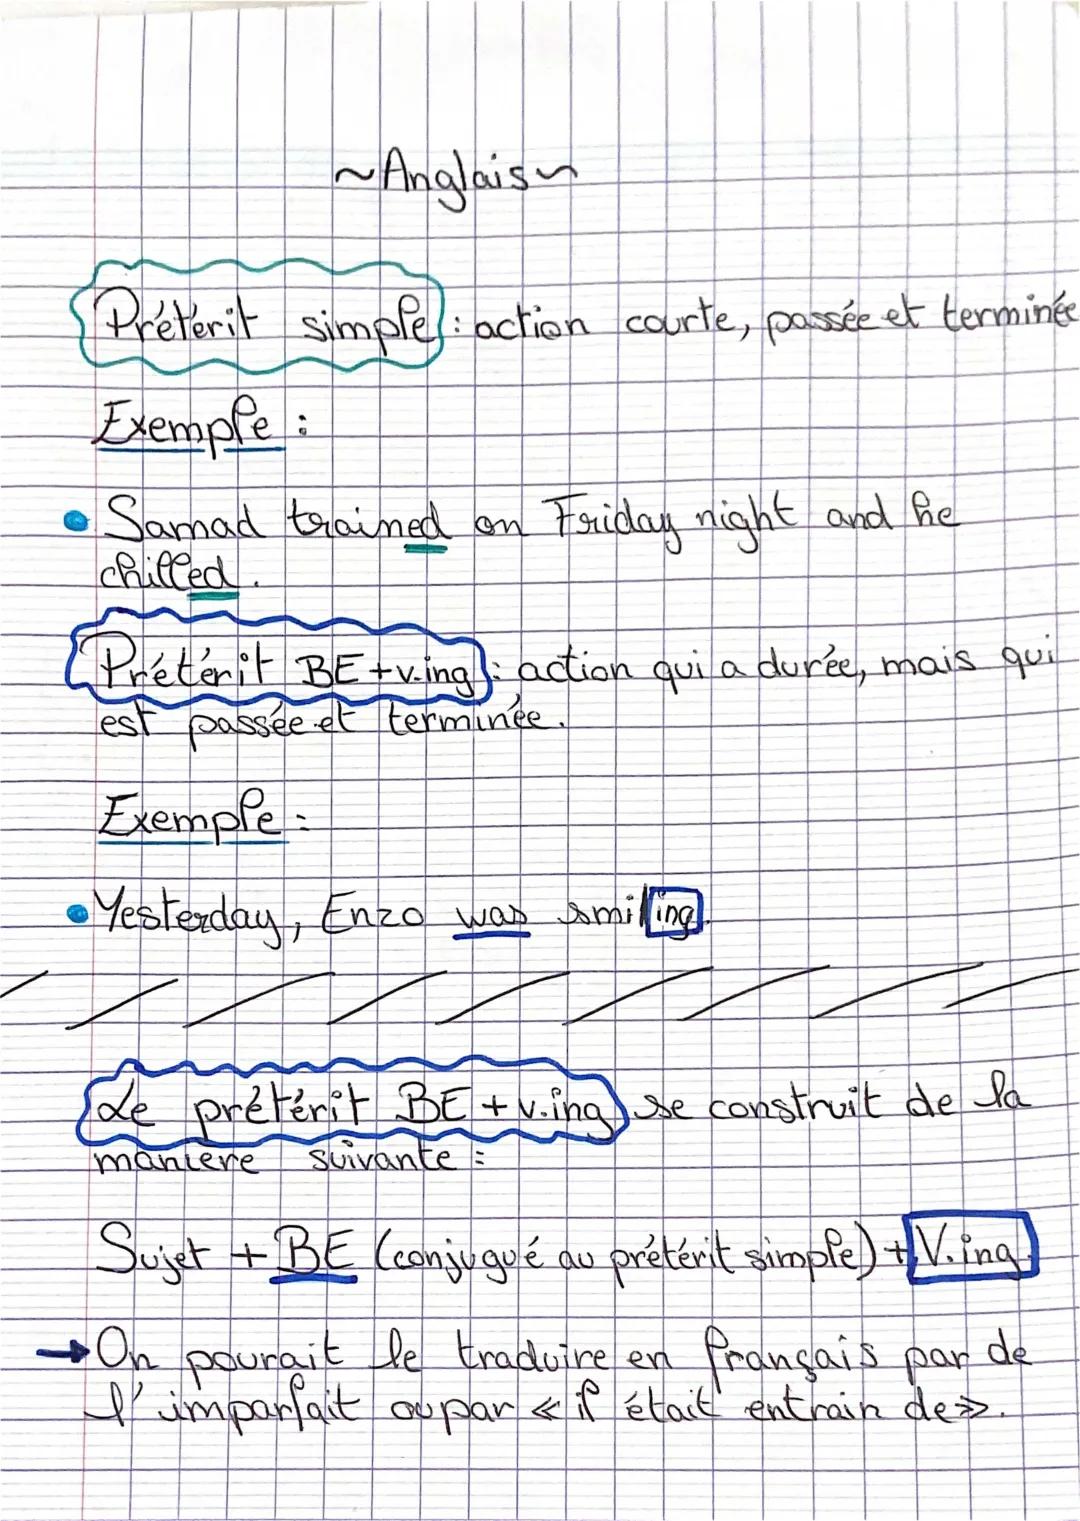 ~Anglais~
Prétérit simple : action courte, passée et terminée
Exemple :
• Samad trained on Friday night and he
chilled.
Prétérit BE +v.ing : action qui a durée, mais qui
est passée et terminée.
Exemple :
• Yesterday, Enzo was smiling.
Le prétérit BE + v.ing se construit de la
manière suivante :
Sujet + BE (conjugué au prétérit simple) + V.ing
→ On pourait le traduire en français par de
l'imparfait ou par « il était entrain de ».